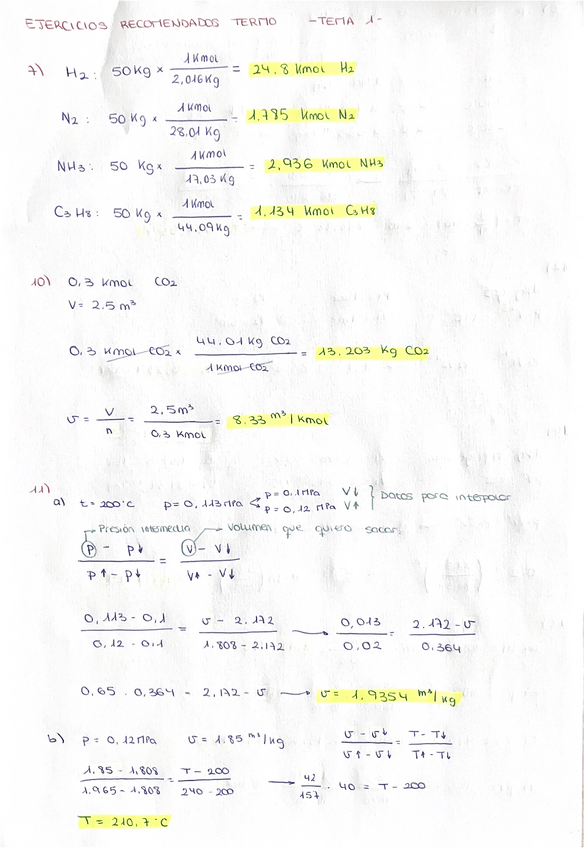 EJERCICIOS RECOMENDADOS TERMO -TEMA 1-
7) H2: 50 Kg × 1 Kmol / 2,016 Kg = 24.8 Kmol H2
N2: 50 Kg × 1 Kmol / 28.01 Kg = 1,785 Kmol N2
NH3: 50 Kg × 1 Kmol / 17,03 Kg = 2,936 Kmol NH3
C3H8: 50 Kg × 1 Kmol / 44,09 Kg = 1,134 Kmol C3H8
10) 0,3 Kmol CO2
V = 2,5 m³
0,3 Kmol CO2 × 44,01 Kg CO2 / 1 Kmol CO2 = 13,203 Kg CO2
v = V / n = 2,5 m³ / 0,3 Kmol = 8.33 m³/Kmol
11)
a) t = 200°C p = 0,113 MPa < p = 0,1 MPa V↓ } Datos para interpolar
p = 0,12 MPa V↑
Presión intermedia Volumen que quiero sacar
(P) - P↓ / P↑ - P↓ = (V) - V↓ / V↑ - V↓
0,113 - 0,1 / 0,12 - 0,1 = v - 2.172 / 1.808 - 2,172 → 0,013 / 0.02 = 2.172 - v / 0.364
0,65 · 0,364 = 2,172 - v → v = 1,9354 m³/kg
b) p = 0,12 MPa v = 1.85 m³/kg v - v↓ / v↑ - v↓ = T - T↓ / T↑ - T↓
1.85 - 1,808 / 1.965 - 1.808 = T - 200 / 240 - 200 → 42 / 157 · 40 = T - 200
T = 210,7 °C